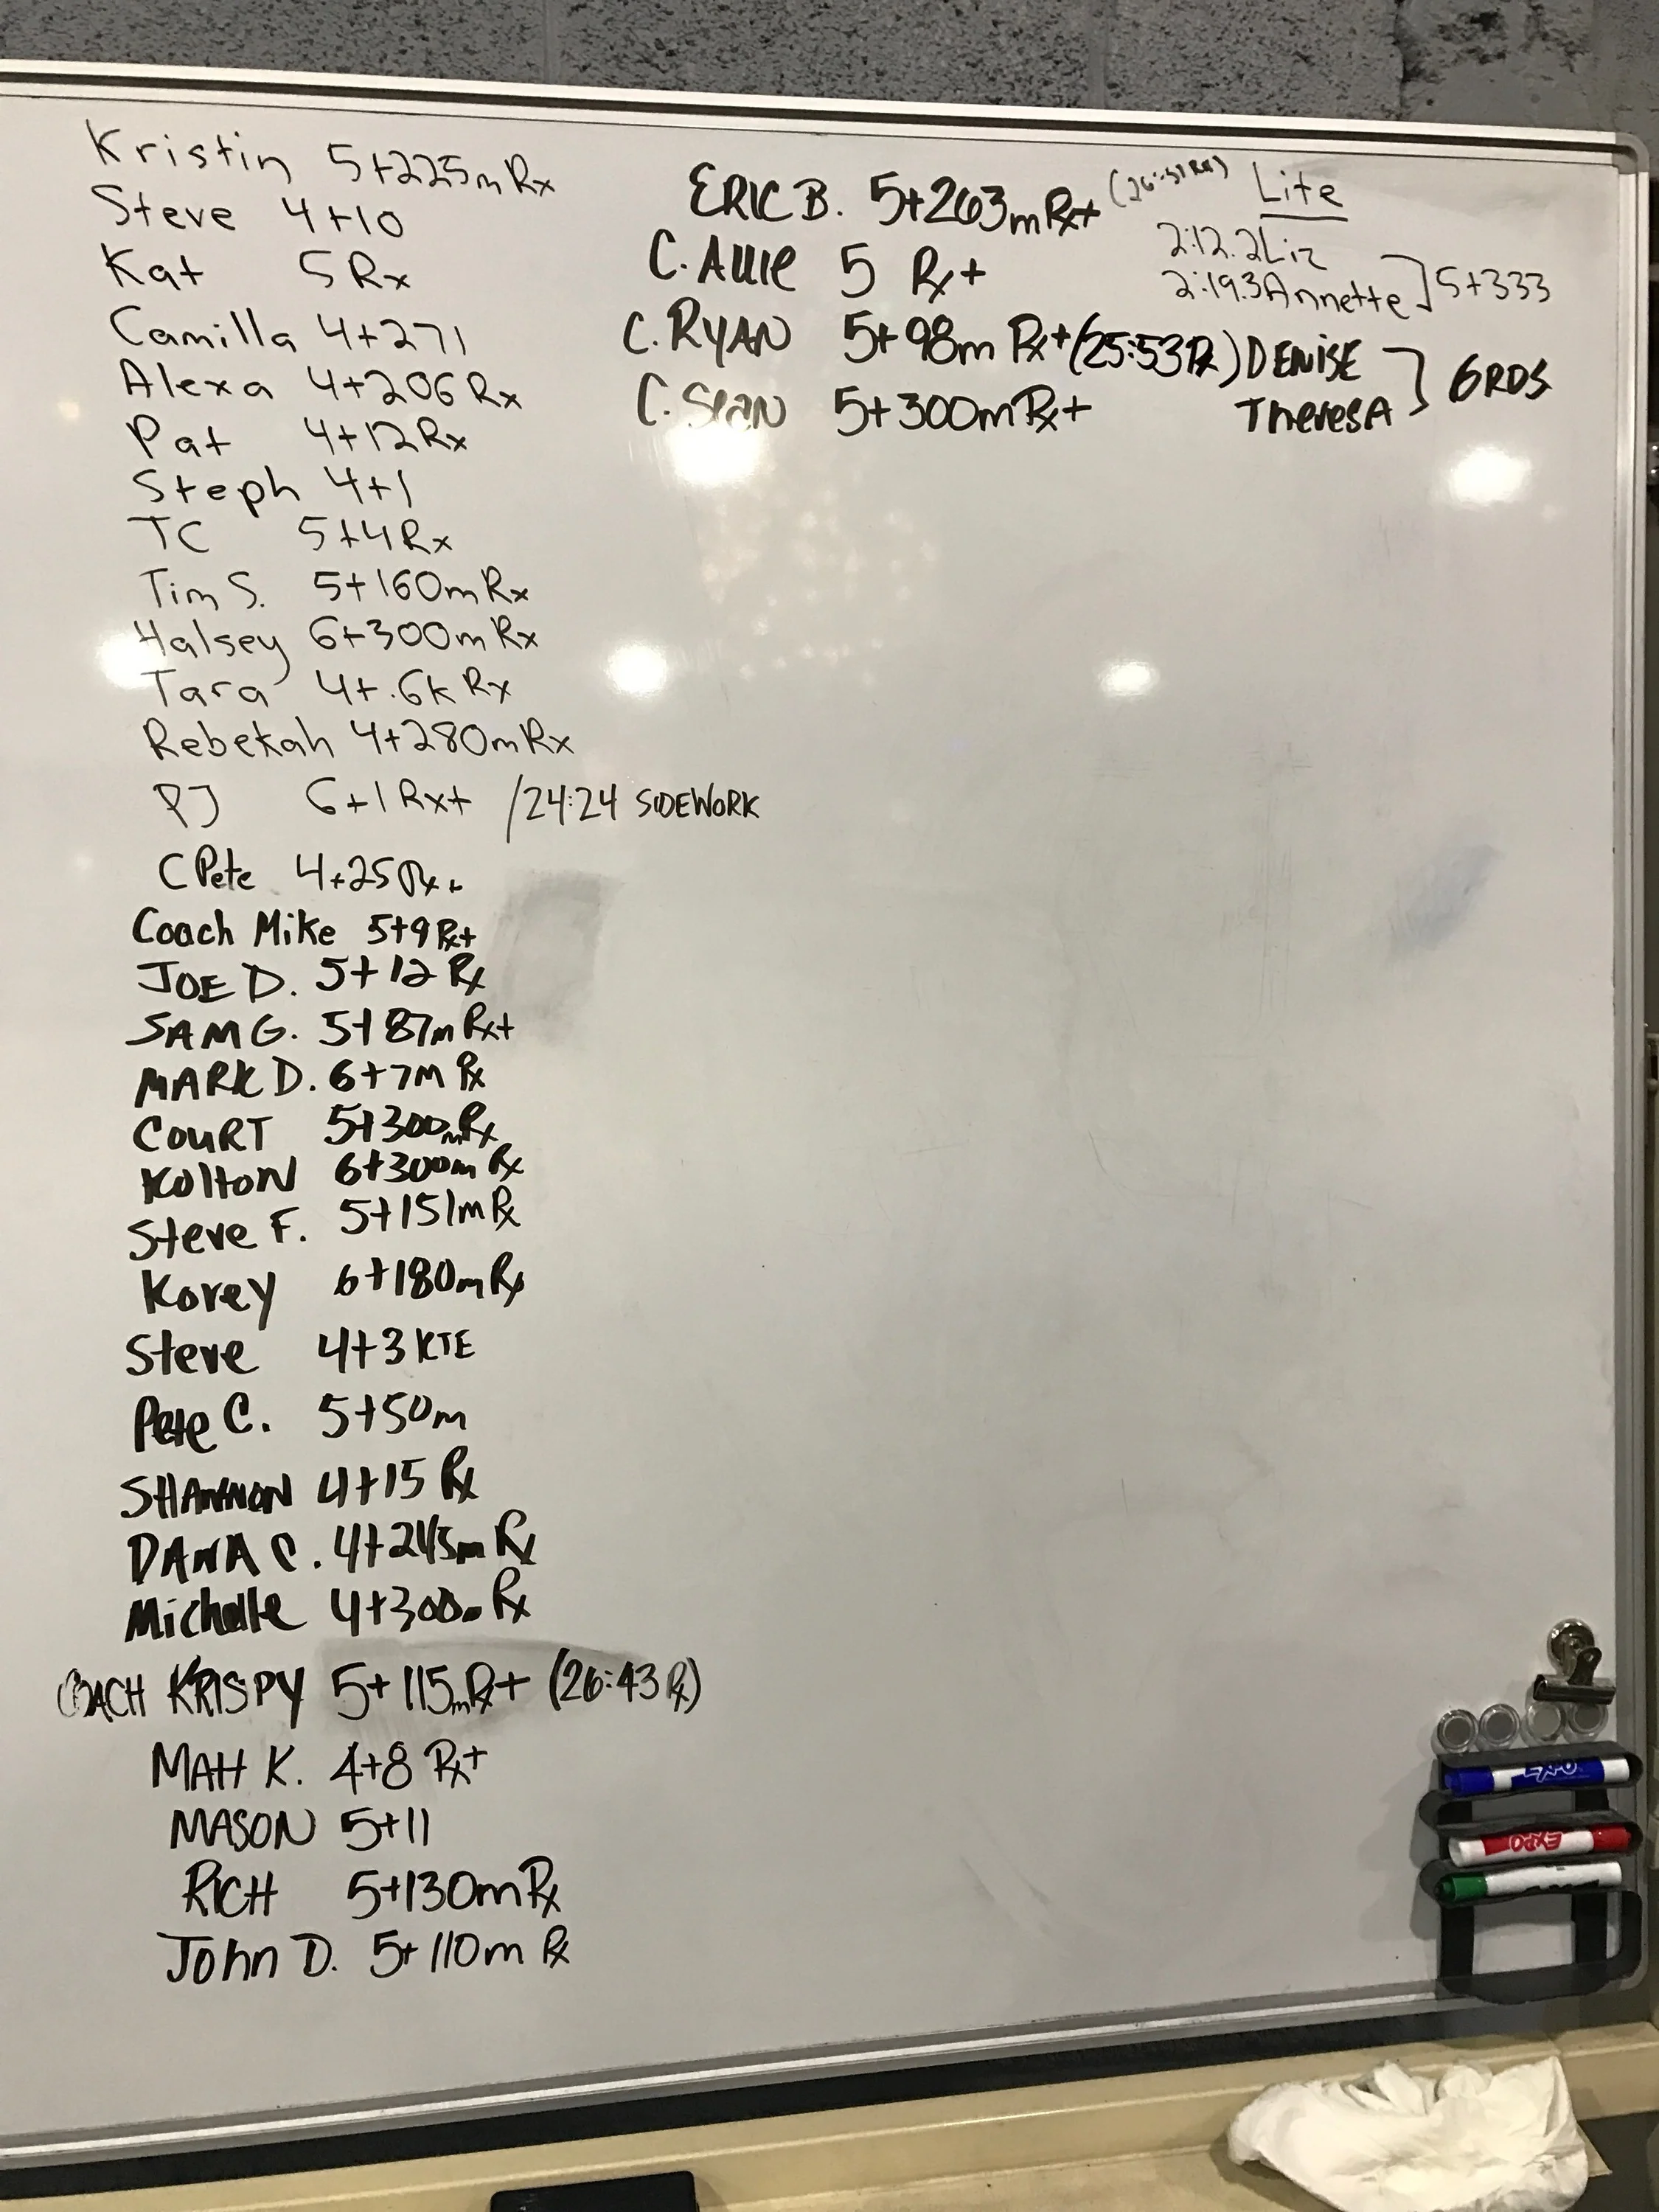 Kristin 5+225m Rx
Steve 4+10
Kat 5 Rx
Camilla 4+271
Alexa 4+206 Rx
Pat 4+12 Rx
Steph 4+1
TC 5+4 Rx
Tim S. 5+160m Rx
Halsey 6+300m Rx
Tara 4+.6k Rx
Rebekah 4+280m Rx
PJ 6+1 Rx+ /24:24 SIDEWORK
C Pete 4+25 Rx+
Coach Mike 5+9 Rx+
JOE D. 5+12 Rx
SAM G. 5+87m Rx+
MARK D. 6+7M Rx
COURT 5+300m Rx
KOltON 6+300m Rx
Steve F. 5+151m Rx
Korey 6+180m Rx
Steve 4+3 KTE
Pete C. 5+50m
SHANNON 4+15 Rx
DANA C. 4+245m Rx
Michelle 4+300m Rx
COACH KRISPY 5+115m Rx+ (26:43 Rx)
MAtt K. 4+8 Rx+
MASON 5+11
RICH 5+130m Rx
John D. 5+110m Rx
ERIC B. 5+263m Rx+
C. Allie 5 Rx+
C. RYAN 5+98m Rx+ (25:53 Rx)
C. Sean 5+300m Rx+
Lite
2:12.2 Liz
2:19.3 Annette ] 5+333
DENISE
TheresA ] 6 RDS
EXPO
EXPO